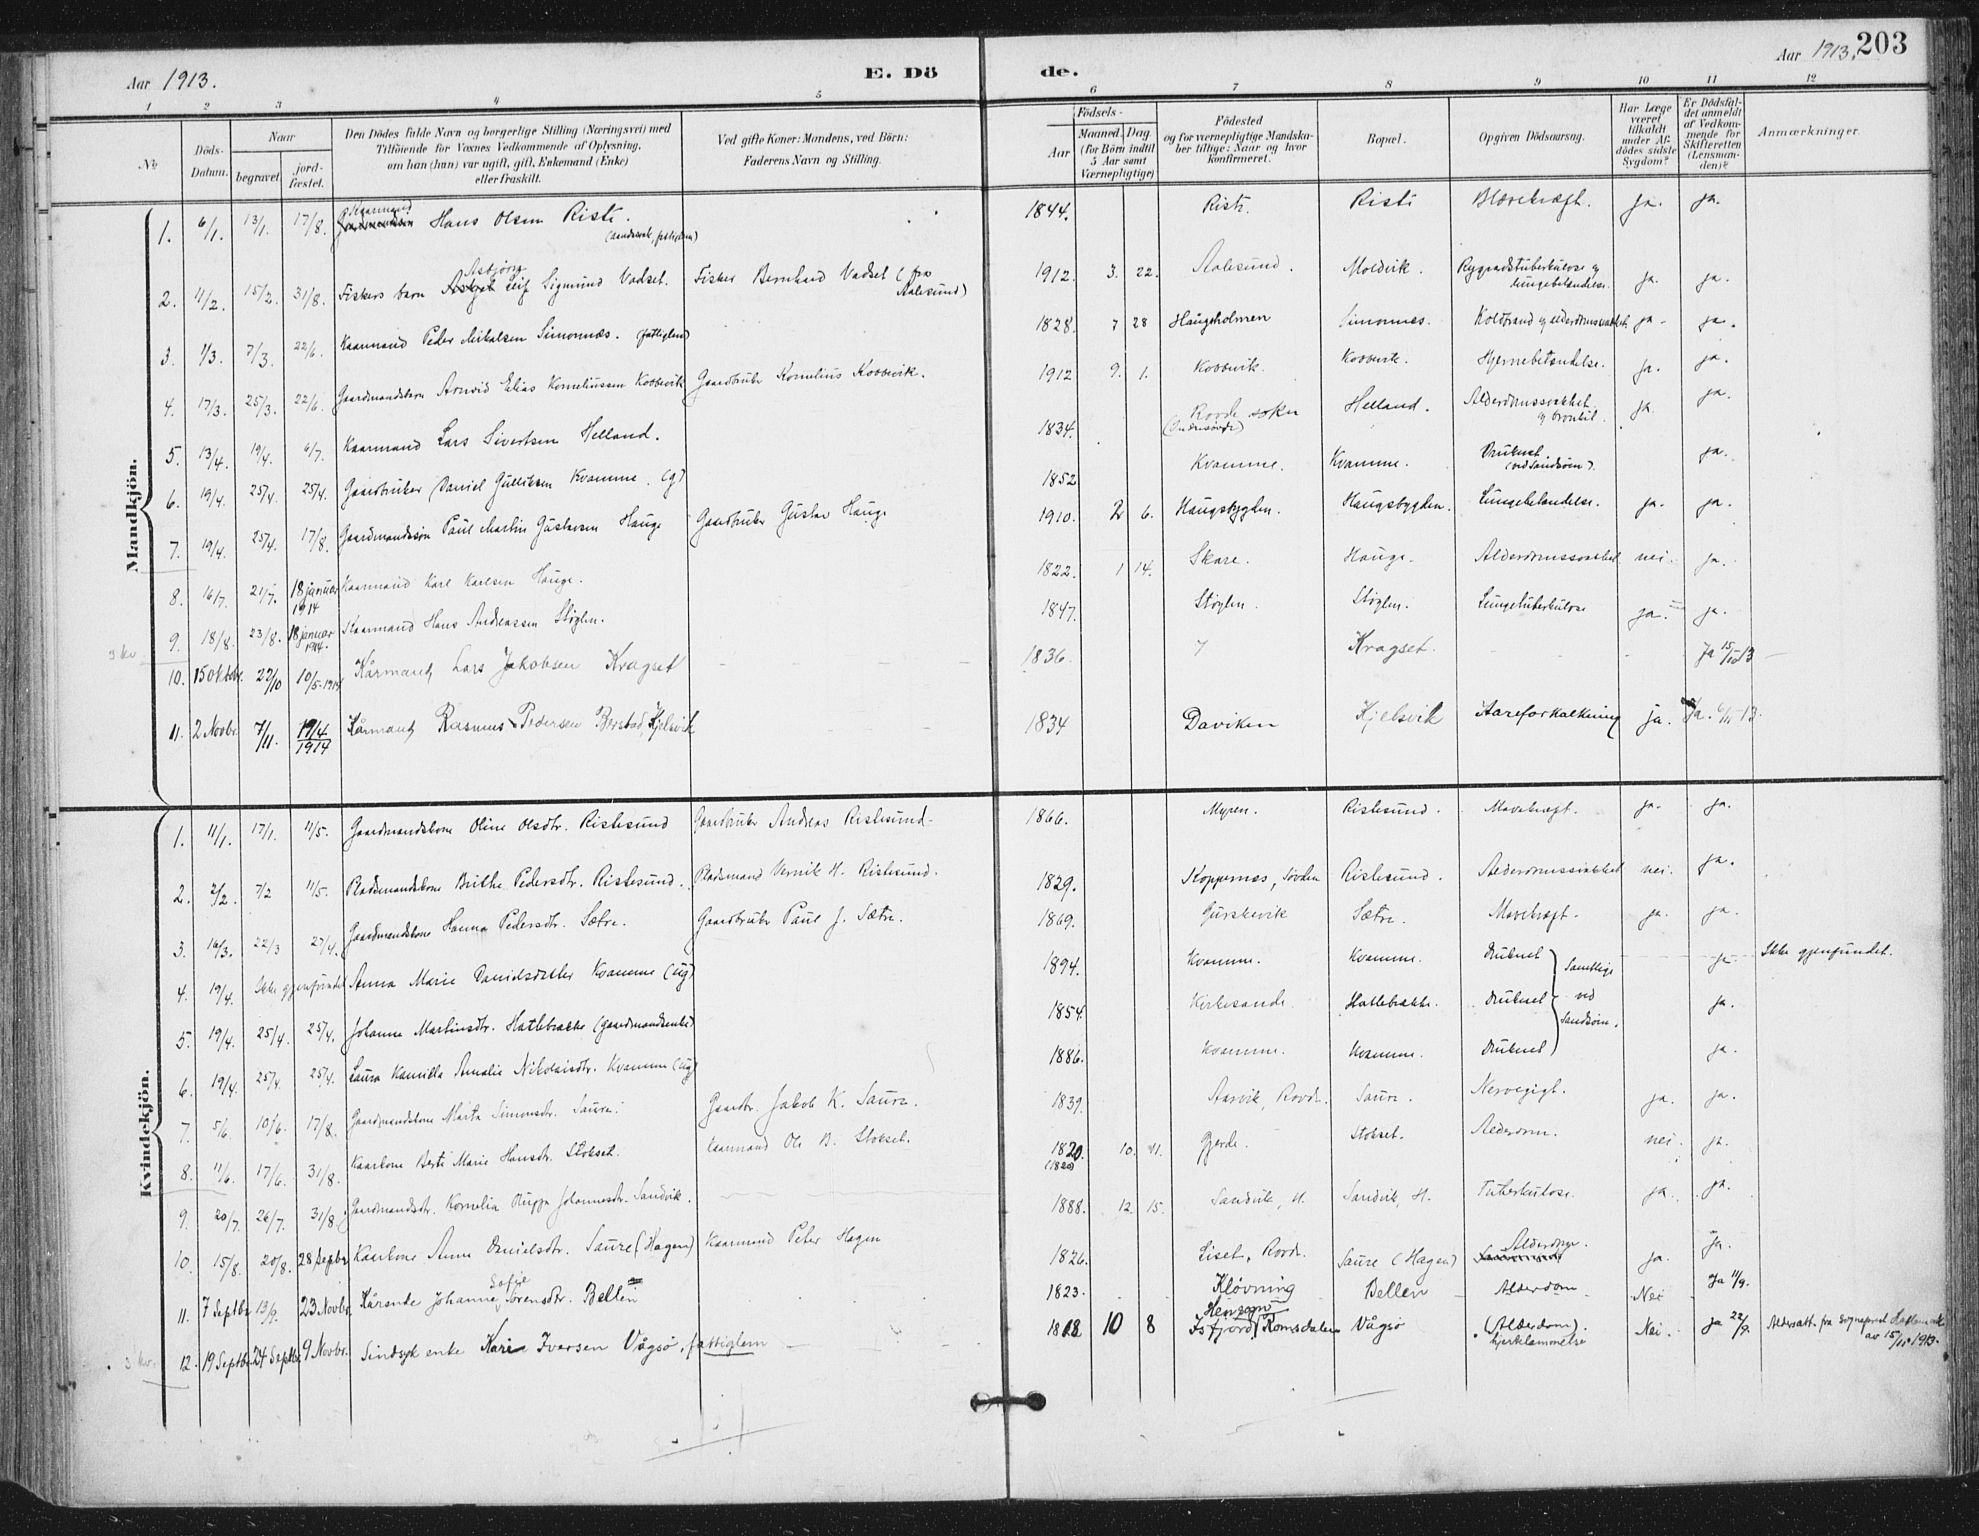 Aar 1913.
E. Dö
de.
Aar 1913.
203
1 2 3 4 5 6 7 8 9 10 11 12
No
Döds-Datum.
Naar
begravet
jord-fæstet.
Den Dödes fulde Navn og borgerlige Stilling (Næringsvei) med
Tilföiende for Voxnes Vedkommende af Oplysning,
om han (hun) var ugift, gift, Enkemand (Enke)
eller fraskilt.
Ved gifte Koner: Mandens, ved Börn:
Faderens Navn og Stilling.
Födsels-
Aar
Maaned. Dag.
(for Börn indtil
5 Aar samt
Værnepligtige)
Födested
og for værnepligtige Mandska-
ber tillige: Naar og hvor
konfirmeret.
Bopæl.
Opgiven Dödsaarsag.
Har Læge
været
tilkaldt
under Af-
dödes sidste
Sygdom?
Er Dödsfal-
det anmeldt
af Vedkom-
mende for
Skifteretten
(Lensman-
den)?
Anmærkninger.
Mandkjön.
1. 6/1. 13/1. 17/8. Kaarmand Hans Olsen Riste. 1844. Riste. Riste Blærekræft. ja. ja.
2. 11/2. 15/2. 31/8. Fiskers barn Asbjørn Leif Sigmund Vadset. Fisker Bernhard Vadset (fra Aalesund) 1912. 3. 22. Aalesund. Moldvik. Rygradstuberkulose og lungebetændelse. ja. ja.
3. 1/3. 7/3. 22/6. Kaarmand Peder Mikalsen Simonnæs. (fattiglem) 1828. 7 28 Haugsholmen Simonnes. Koldbrand og alderdomssvakhet ja. ja.
4. 17/3. 25/3. 22/6. Gaardmandsbarn Arnvid Elias Korneliussen Kobbevik Gaardbruker Kornelius Kobbevik. 1912 9. 1. Kobbevik. Kobbevik. Hjernebetændelse. ja. ja.
5. 13/4. 19/4. 6/7. Kaarmand Lars Sivertsen Helland. 1834. Rovde sokn Helland. Alderdomssvakhet og bronkit. ja. ja.
6. 19/4. 25/4. 25/4. Gaardbruker Daniel Gulliksen Kvamme. (g) 1852 Kvamme. Kvamme. Druknet (ved Sandsøen). ja.
7. 19/4. 25/4. 17/8. Gaardmandssøn Paul Martin Gustavsen Hauge Gaardbruker Gustav Hauge 1910. 2 6. Haugsbygden. Haugsbygden. Lungebetændelse. ja. ja.
8. 16/7. 21/7. 18 januar 1914 Kaarmand Karl Karlsen Hauge. 1822. 1 14. Skare. Hauge. Alderdomssvakhet nei. ja.
9. 18/8. 23/8. 18 januar 1914. Kaarmand Hans Andreassen Støylen. 1847. Støylen. Støylen. Lungetuberkulose ja. ja.
3 kv
10. 15 Oktobr. 22/10 10/5-1914 Kårmand Lars Jakobsen Kragset 1836. Kragset. Ja 15/10 13
11. 2 Novbr. 7/11. 19/4 1914 Kårmand Rasmus Pedersen Berstad, Kjelsvik 1834 Daviken Kjelsvik Aareforkalkning ja. Ja. 6/11-13.
Kvindekjön.
1. 11/1. 17/1. 11/5. Gaardmandskone Oline Olsdtr. Ristesund Gaardbruker Andreas Ristesund. 1866. Myren. Ristesund. Mavekræft. ja. ja.
2. 2/2. 7/2 11/5. Pladsmandskone Brithe Pedersdtr. Ristesund. Pladsmand Vernik H. Ristesund. 1829. Koppernæs, Søvden Ristesund. Alderdomssvakhet nei. ja.
3. 16/3. 22/3 27/4. Gaardmandskone Hanna Pedersdtr. Sætre. Gaardbruker Paul J. Sætre. 1869. Gurskevik Sætre. Mavekræft. ja. ja.
4. 19/4. Ikke gjenfundet Anna Marie Danielsdatter Kvamme (ug) 1894. Kvamme. Kvamme. Druknet ja Ikke gjenfundet.
5. 19/4. 25/4. 25/4. Johanne Martinsdtr. Hatlebrække (gaardmandsenke) 1854. Kirkesande. Hatlebrække. Druknet Samtlige ved Sandsøen. ja.
6. 19/4. 25/4. 25/4. Laura Kamilla Amalie Nikolaisdtr. Kvamme (ug) 1886. Kvamme. Kvamme. Druknet ja.
7. 5/6. 10/6. 17/8. Gaardmandskone Marta Simonsdtr. Saure. Gaardbr. Jakob K. Saure. 1839. Aarvik, Rovde. Saure. Nervegigt. ja. ja.
8. 11/6. 17/6. 31/8. Kaarkone Berte Marie Hansdtr. Stokset. Kaarmand Ole B. Stokset. 1820. (1820) 10. Gjerde. Stokset. Alderdom. nei. ja.
9. 20/7. 26/7. 31/8. Gaardmandsdtr. Kornelia Johannesdtr. Sandvik. 1888. 12. 15. Sandvik, H. Sandvik, H. Tuberkulose. ja. ja.
10. 15/8. 20/8. 28 Septbr Kaarkone Anne Danielsdtr. Saure (Hagen) Kaarmand Peter Hagen 1826. Liset, Rovde. Saure (Hagen) Alderdom. ja. ja.
11. 7 Septbr 13/9. 23 Novbr. Kårenke Johanne Sofie Sørensdtr. Bellen 1823. Kløvning Bellen Alderdom Nei Ja 11/9.
3 kv.
12. 19 Septbr. 24 Septbr. 9 Novbr. Sindsyk enke Kari Iversen Vågsø, fattiglem 1818 10 8 Isfjord, Romsdalen Vågsø (Alderdom). hjerteklammelse Nei. ja 22/9. Aldersatt. fra Sogneprest av 15/11 1913.